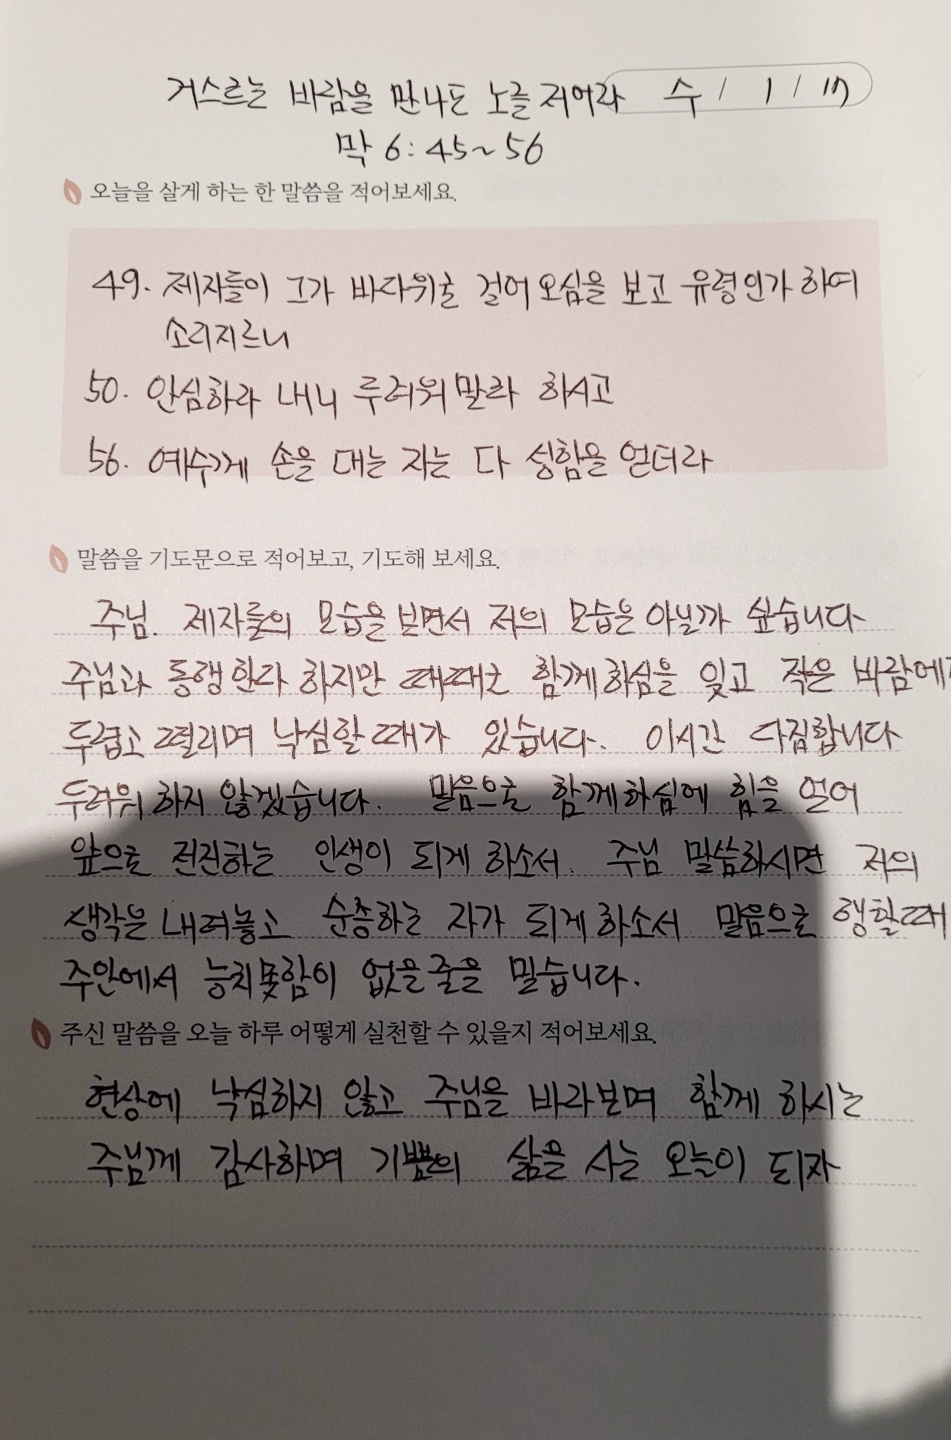 거스르는 바람을 만나도 노를 저어라 수 / 1 / 17
막 6:45~56
오늘을 살게 하는 한 말씀을 적어보세요.
49. 제자들이 그가 바다위로 걸어 오심을 보고 유령인가 하여
소리지르니
50. 안심하라 내니 두려워 말라 하시고
56. 예수께 손을 대는 자는 다 성함을 얻더라
말씀을 기도문으로 적어보고, 기도해 보세요.
주님. 제자들의 모습을 보면서 저의 모습은 아닐까 싶습니다
주님과 동행한다 하지만 때때로 함께하심을 잊고 작은 바람에
두렵고 떨리며 낙심할때가 있습니다. 이시간 다짐합니다
두려워 하지 않겠습니다. 말씀으로 함께하심에 힘을 얻어
앞으로 전진하는 인생이 되게 하소서. 주님 말씀하시면 저의
생각을 내려놓고 순종하는 자가 되게 하소서 말씀으로 행할때
주안에서 능치못함이 없을 줄을 믿습니다.
주신 말씀을 오늘 하루 어떻게 실천할 수 있을지 적어보세요.
현상에 낙심하지 않고 주님을 바라보며 함께 하시는
주님께 감사하며 기쁨의 삶을 사는 오늘이 되자